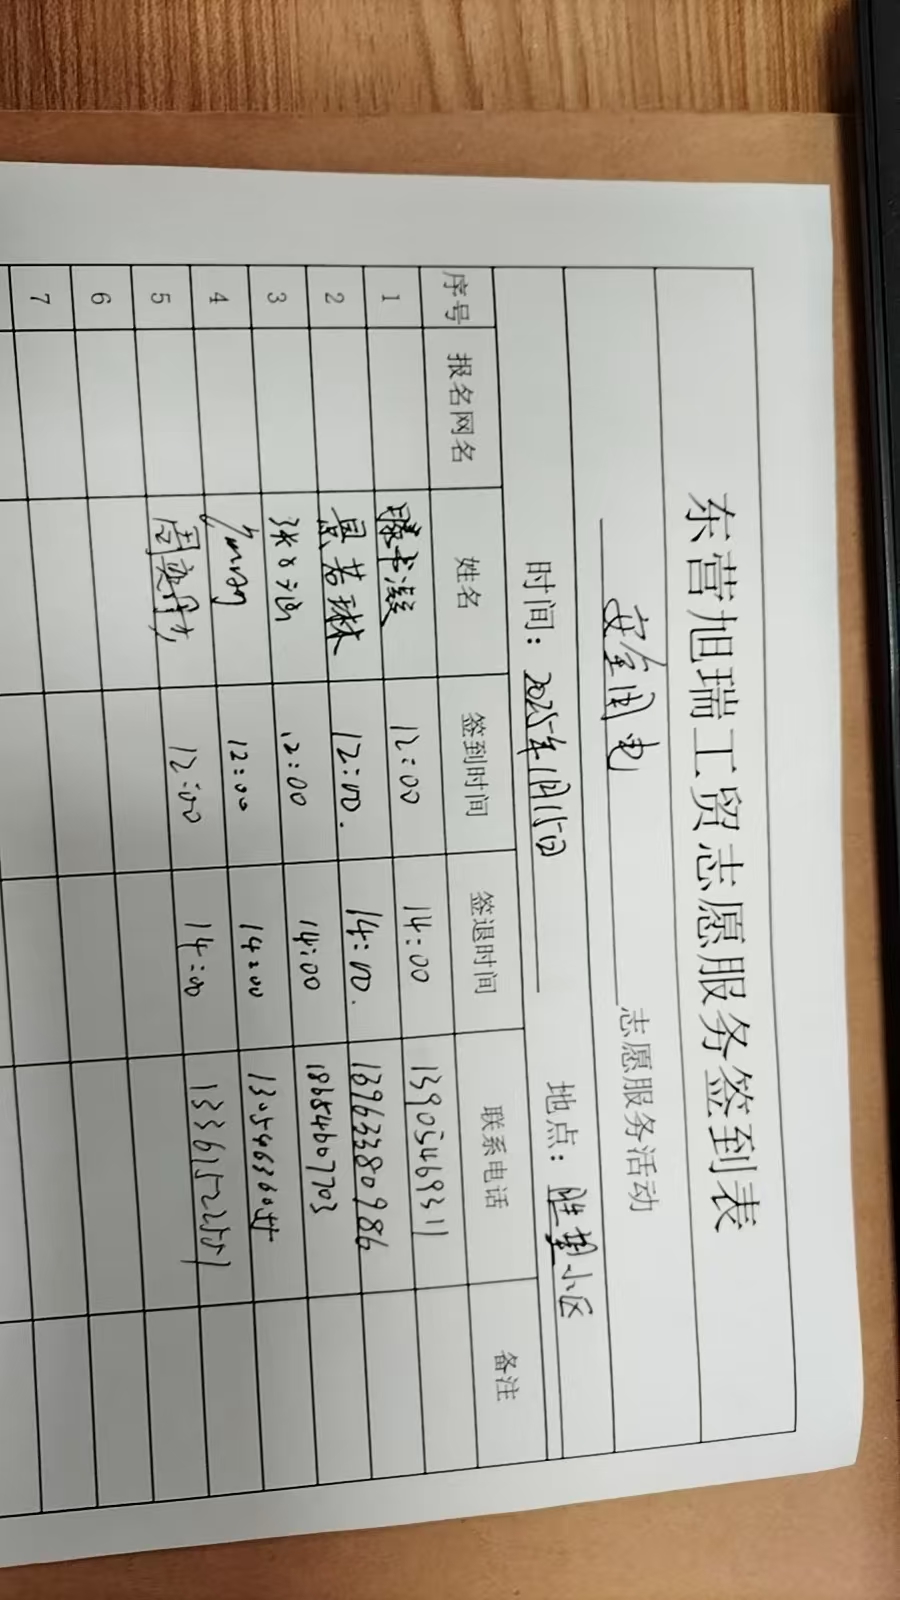 东营旭瑞工贸志愿服务签到表
安全用电志愿服务活动
时间：2025年1月15日 地点：胜望小区
序号 报名网名 姓名 签到时间 签退时间 联系电话 备注
1 滕学凝 12:00 14:00 13905469311
2 景若琳 12:00. 14:00. 18963380986
3 12:00 14:00 186854607703
4 12:00 14:00
5 12:00 14:00 13361522551
6
7